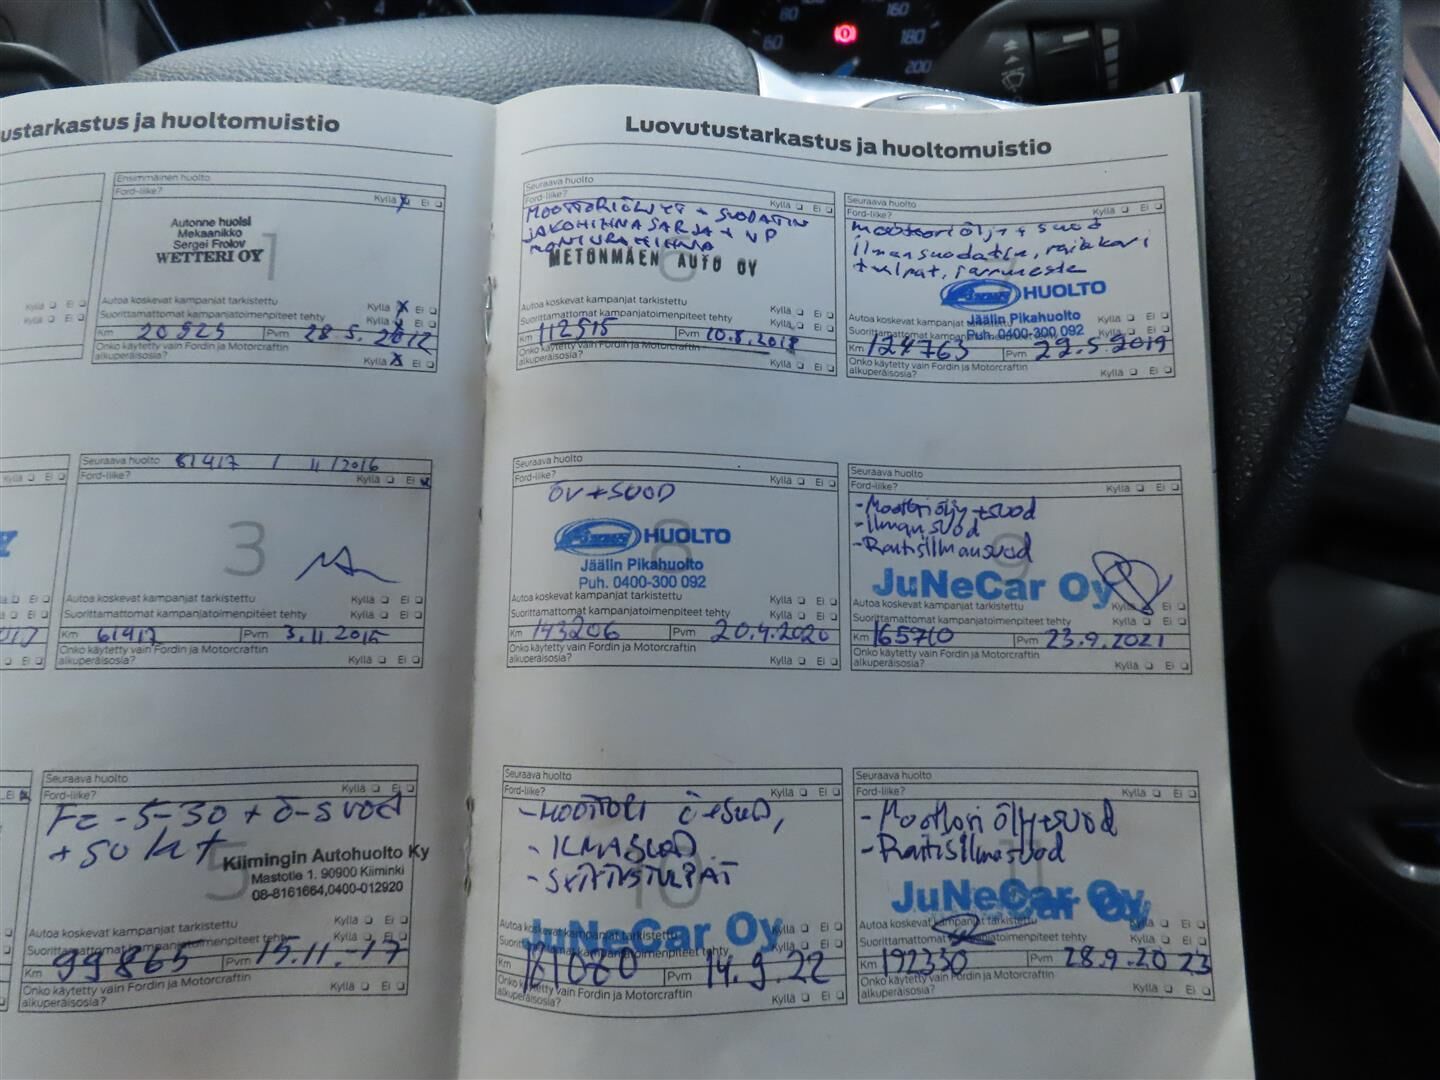 ustarkastus ja huoltomuistio
Ensimmäinen huolto
Ford-liike? Kyllä Ei
Autonne huolsi
Mekaanikko
Sergei Frolov
WETTERI OY
1
Autoa koskevat kampanjat tarkistettu Kyllä Ei
Suorittamattomat kampanjatoimenpiteet tehty Kyllä Ei
Km 20525 Pvm 28.5.2012
Onko käytetty vain Fordin ja Motorcraftin
alkuperäisosia? Kyllä Ei
Seuraava huolto 61417 / 11/2016
Ford-liike? Kyllä Ei
3
Autoa koskevat kampanjat tarkistettu Kyllä Ei
Suorittamattomat kampanjatoimenpiteet tehty Kyllä Ei
Km 61417 Pvm 3.11.2015
Onko käytetty vain Fordin ja Motorcraftin
alkuperäisosia? Kyllä Ei
Seuraava huolto
Ford-liike? Kyllä Ei
-5-30 + ö-suod
5
Kiimingin Autohuolto Ky
Mastotie 1. 90900 Kiiminki
08-8161664,0400-012920
Autoa koskevat kampanjat tarkistettu Kyllä Ei
Suorittamattomat kampanjatoimenpiteet tehty Kyllä Ei
Km 99865 Pvm 15.11.-17
Onko käytetty vain Fordin ja Motorcraftin
alkuperäisosia? Kyllä Ei
Luovutustarkastus ja huoltomuistio
Seuraava huolto
Ford-liike? Kyllä Ei
MOOTTORIÖLJYT + SUODATIN
JAKOHIHNASARJA + VP
HIHNA
METONMÄEN AUTO OY
6
Autoa koskevat kampanjat tarkistettu Kyllä Ei
Suorittamattomat kampanjatoimenpiteet tehty Kyllä Ei
Km 112515 Pvm 10.8.2018
Onko käytetty vain Fordin ja Motorcraftin
alkuperäisosia? Kyllä Ei
Seuraava huolto
Ford-liike? Kyllä Ei
moottoriölj. + suod
ilmansuodatin, raikkari
tulpat, jarruneste
7
HUOLTO
Jäälin Pikahuolto
Puh. 0400-300 092
Km 127763 Pvm 22.5 2019
Onko käytetty vain Fordin ja Motorcraftin
alkuperäisosia? Kyllä Ei
Seuraava huolto
Ford-liike? Kyllä Ei
ÖV + SUOD
8
HUOLTO
Jäälin Pikahuolto
Puh. 0400-300 092
Autoa koskevat kampanjat tarkistettu Kyllä Ei
Suorittamattomat kampanjatoimenpiteet tehty Kyllä Ei
Km 143206 Pvm 20.4.2020
Onko käytetty vain Fordin ja Motorcraftin
alkuperäisosia? Kyllä Ei
Seuraava huolto
Ford-liike? Kyllä Ei
-Moottoriöljy+suod
-Ilmansuod
-Raitisilmansuod
9
JuNeCar Oy
Autoa koskevat kampanjat tarkistettu Kyllä Ei
Suorittamattomat kampanjatoimenpiteet tehty Kyllä Ei
Km 165710 Pvm 23.9.2021
Onko käytetty vain Fordin ja Motorcraftin
alkuperäisosia? Kyllä Ei
Seuraava huolto
Ford-liike? Kyllä Ei
-MOOTTORI Ö+SUOD,
- ILMASUOD
- SYTYTYSTULPAT
10
JuNeCar Oy
Autoa koskevat kampanjat tarkistettu Kyllä Ei
Km 181080 Pvm 14.9.22
Onko käytetty vain Fordin ja Motorcraftin
alkuperäisosia? Kyllä Ei
Seuraava huolto
Ford-liike? Kyllä Ei
- Moottoriöljy+suod
- Raitisilmasuod
11
JuNeCar Oy
Autoa koskevat kampanjat tarkistettu Kyllä Ei
Suorittamattomat kampanjatoimenpiteet tehty Kyllä Ei
Km 192330 Pvm 28.9.2023
Onko käytetty vain Fordin ja Motorcraftin
alkuperäisosia? Kyllä Ei